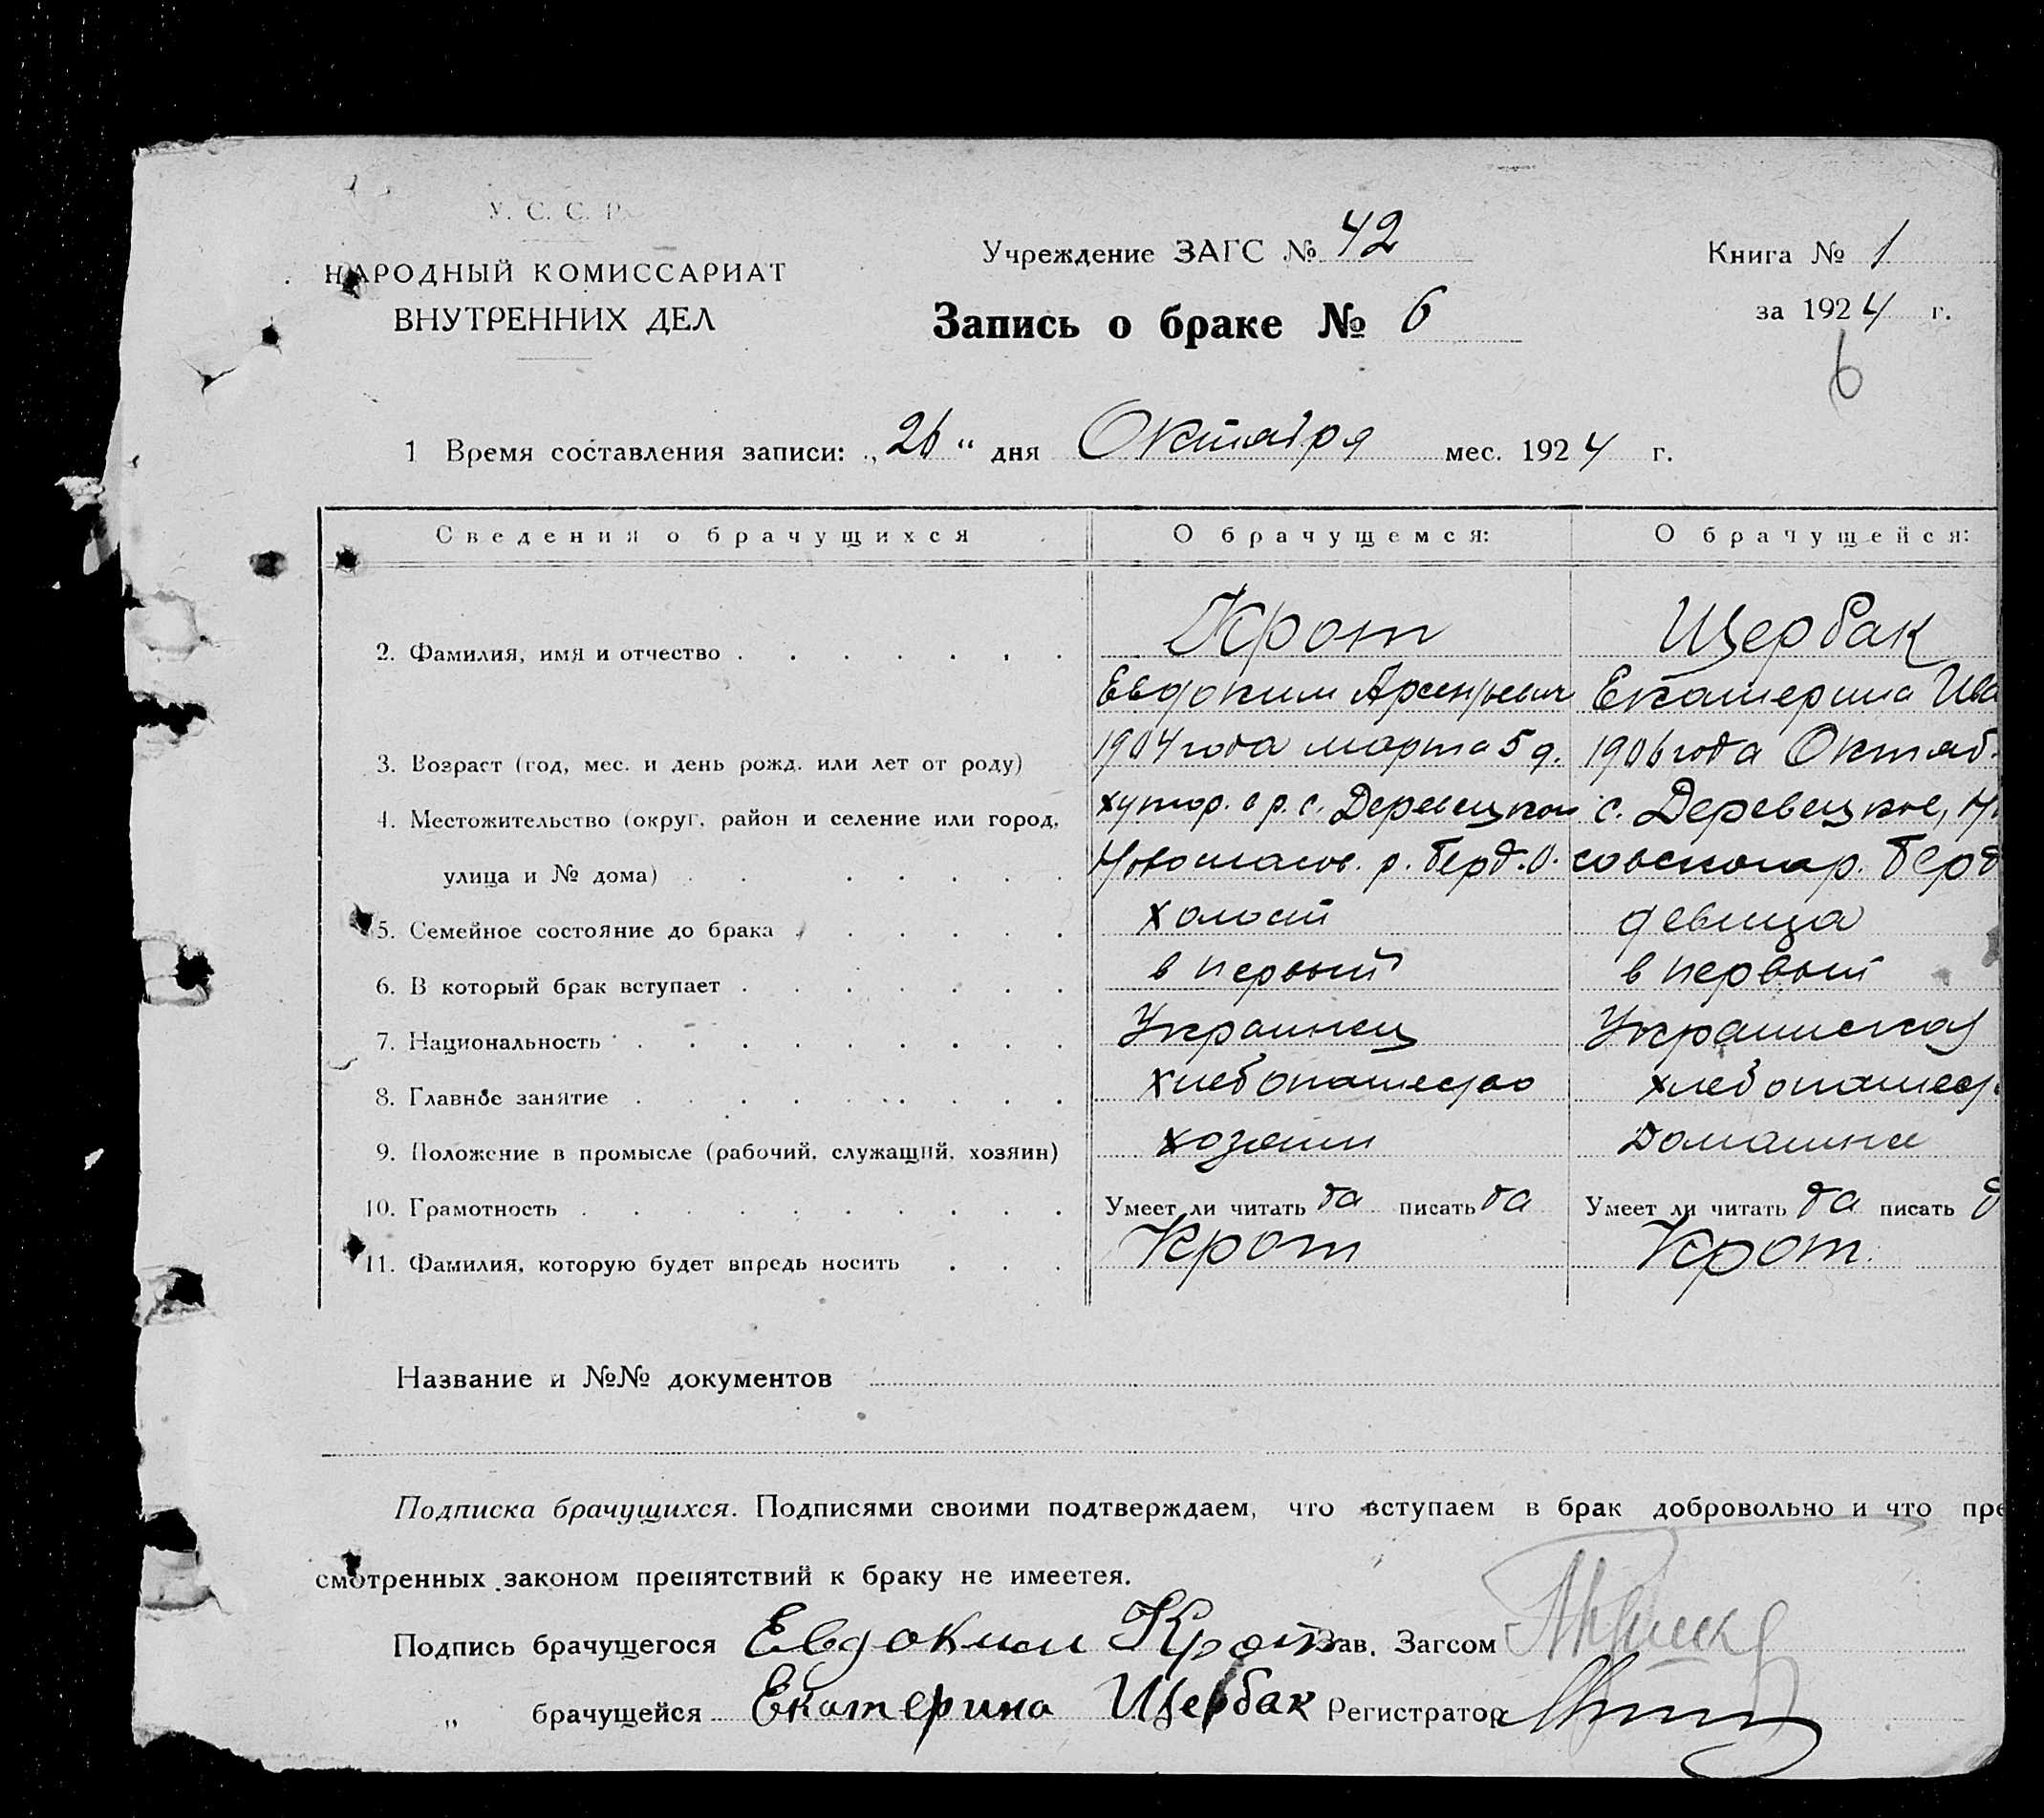 У. С. С. Р.
НАРОДНЫЙ КОМИССАРИАТ
ВНУТРЕННИХ ДЕЛ
Учреждение ЗАГС № 42
Запись о браке № 6
Книга № 1
за 1924 г.
6
1 Время составления записи: „26“ дня Октября мес. 1924 г.
Сведения о брачущихся О брачущемся: О брачущейся:
2. Фамилия, имя и отчество Крот Щербак
Евдоким Арсентьевич Екатерина Ива
3. Возраст (год, мес. и день рожд. или лет от роду) 1904 года марта 5 д. 1906 года Октяб
4. Местожительство (округ, район и селение или город, хутор. с. Деревецкое, с. Деревецкое,
улица и № дома) Новоспасов. р. Берд. о. совского р. Берд
5. Семейное состояние до брака холост девица
6. В который брак вступает в первый в первый
7. Национальность Украинец Украинская
8. Главное занятие хлебопашество хлебопашес
9. Положение в промысле (рабочий, служащий, хозяин) хозяин домашние
10. Грамотность Умеет ли читать да писать да Умеет ли читать да писать д
11. Фамилия, которую будет впредь носить Крот Крот.
Название и №№ документов
Подписка брачущихся. Подписями своими подтверждаем, что вступаем в брак добровольно и что пре
смотренных законом препятствий к браку не имеется.
Подпись брачущегося Евдоким Крот Зав. Загсом
„ брачущейся Екатерина Щербак Регистратор